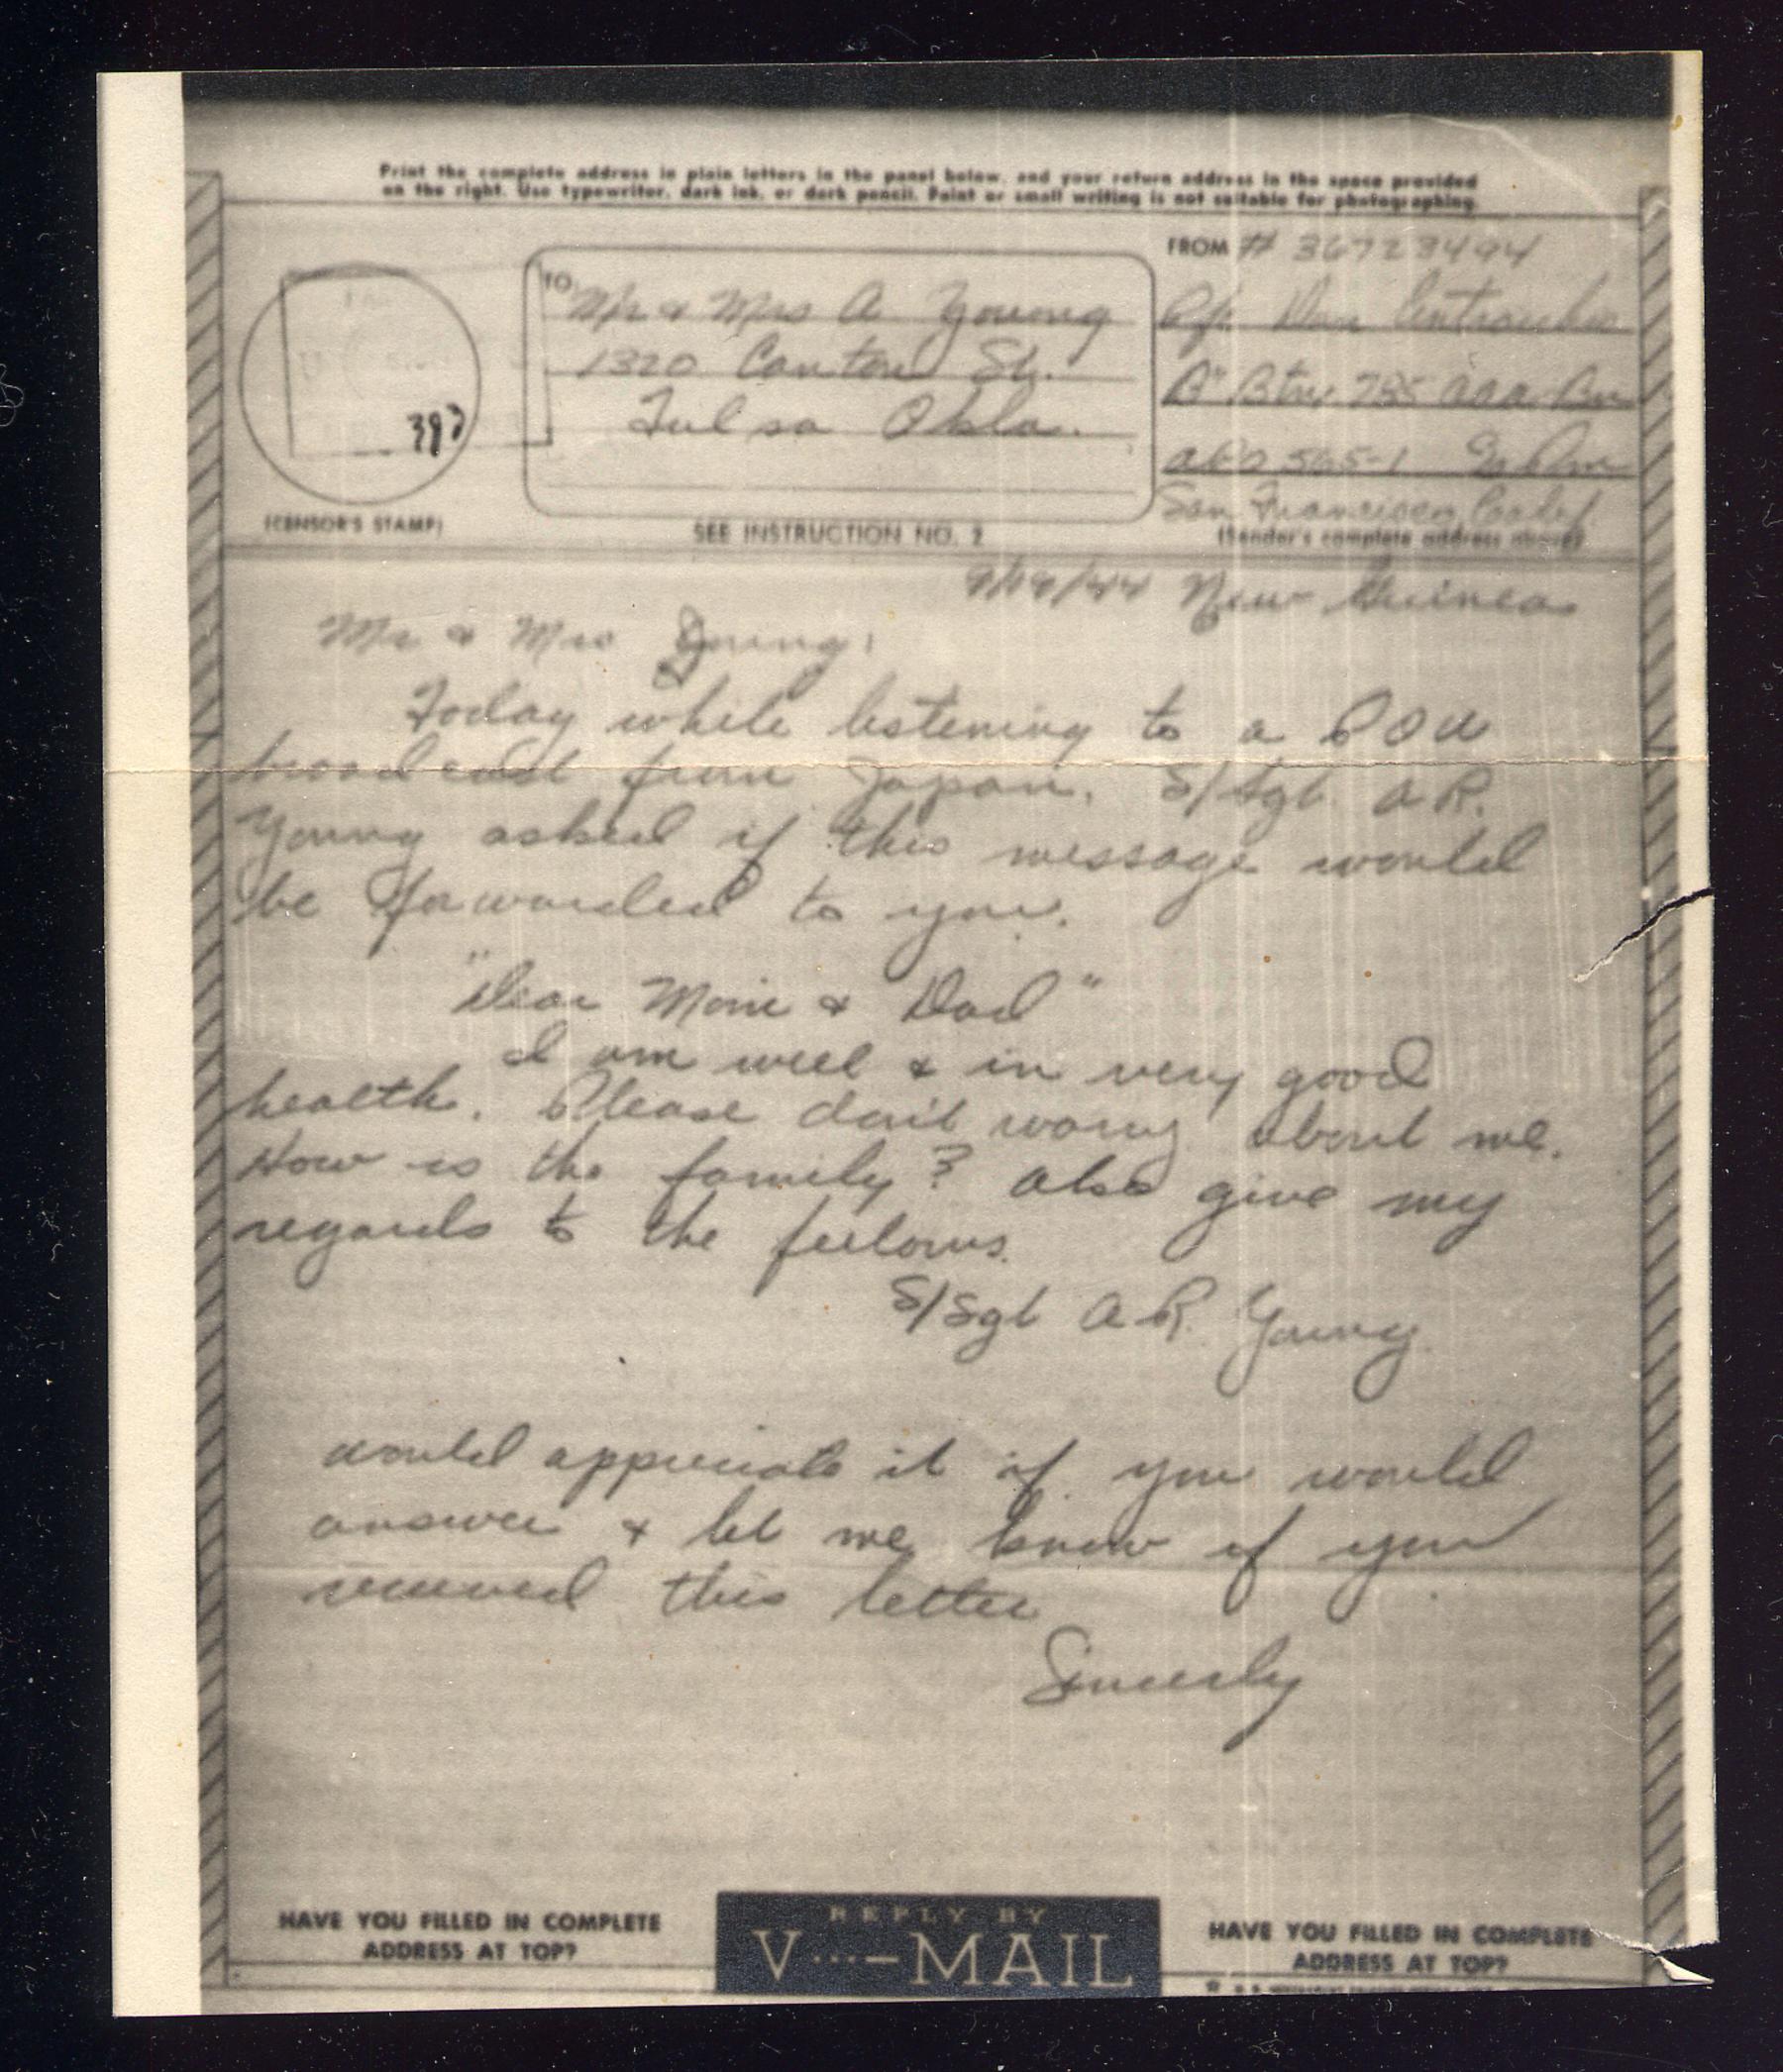 Print the complete address in plain letters in the panel below, and your return address in the space provided
on the right. Use typewriter, dark ink, or dark pencil. Faint or small writing is not suitable for photographing.
FROM # 36723494
TO
Mr & Mrs A Young
1320 Canton St.
Tulsa Okla.
Btry 785 AAA Bn
APO 565-1
San Francisco, Calif
397
(CENSOR'S STAMP)
SEE INSTRUCTION NO. 2
(Sender's complete address above)
9/19/44 New Guinea
Mr & Mrs Young:
Today while listening to a POW
broadcast from Japan. S/Sgt. A R.
Young asked if this message would
be forwarded to you.
"Dear Mom & Dad"
I am well & in very good
health. Please don't worry about me.
How is the family? Also give my
regards to the fellows.
S/Sgt A R. Young
would appriciate it if you would
answer & let me know if you
received this letter
Sincerly
HAVE YOU FILLED IN COMPLETE
ADDRESS AT TOP?
REPLY BY
V···—MAIL
HAVE YOU FILLED IN COMPLETE
ADDRESS AT TOP?